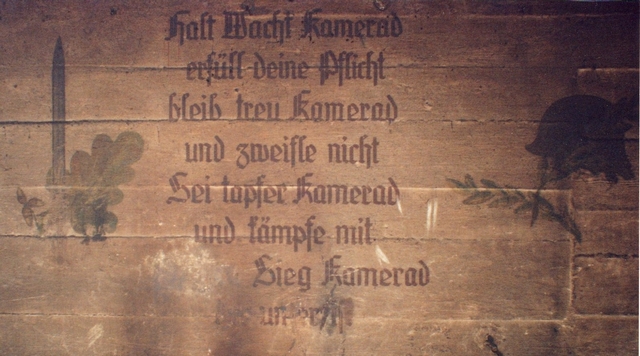 Halt Wacht Kamerad
erfüll deine Pflicht
bleib treu Kamerad
und zweifle nicht
Sei tapfer Kamerad
und kämpfe mit
Sieg Kamerad